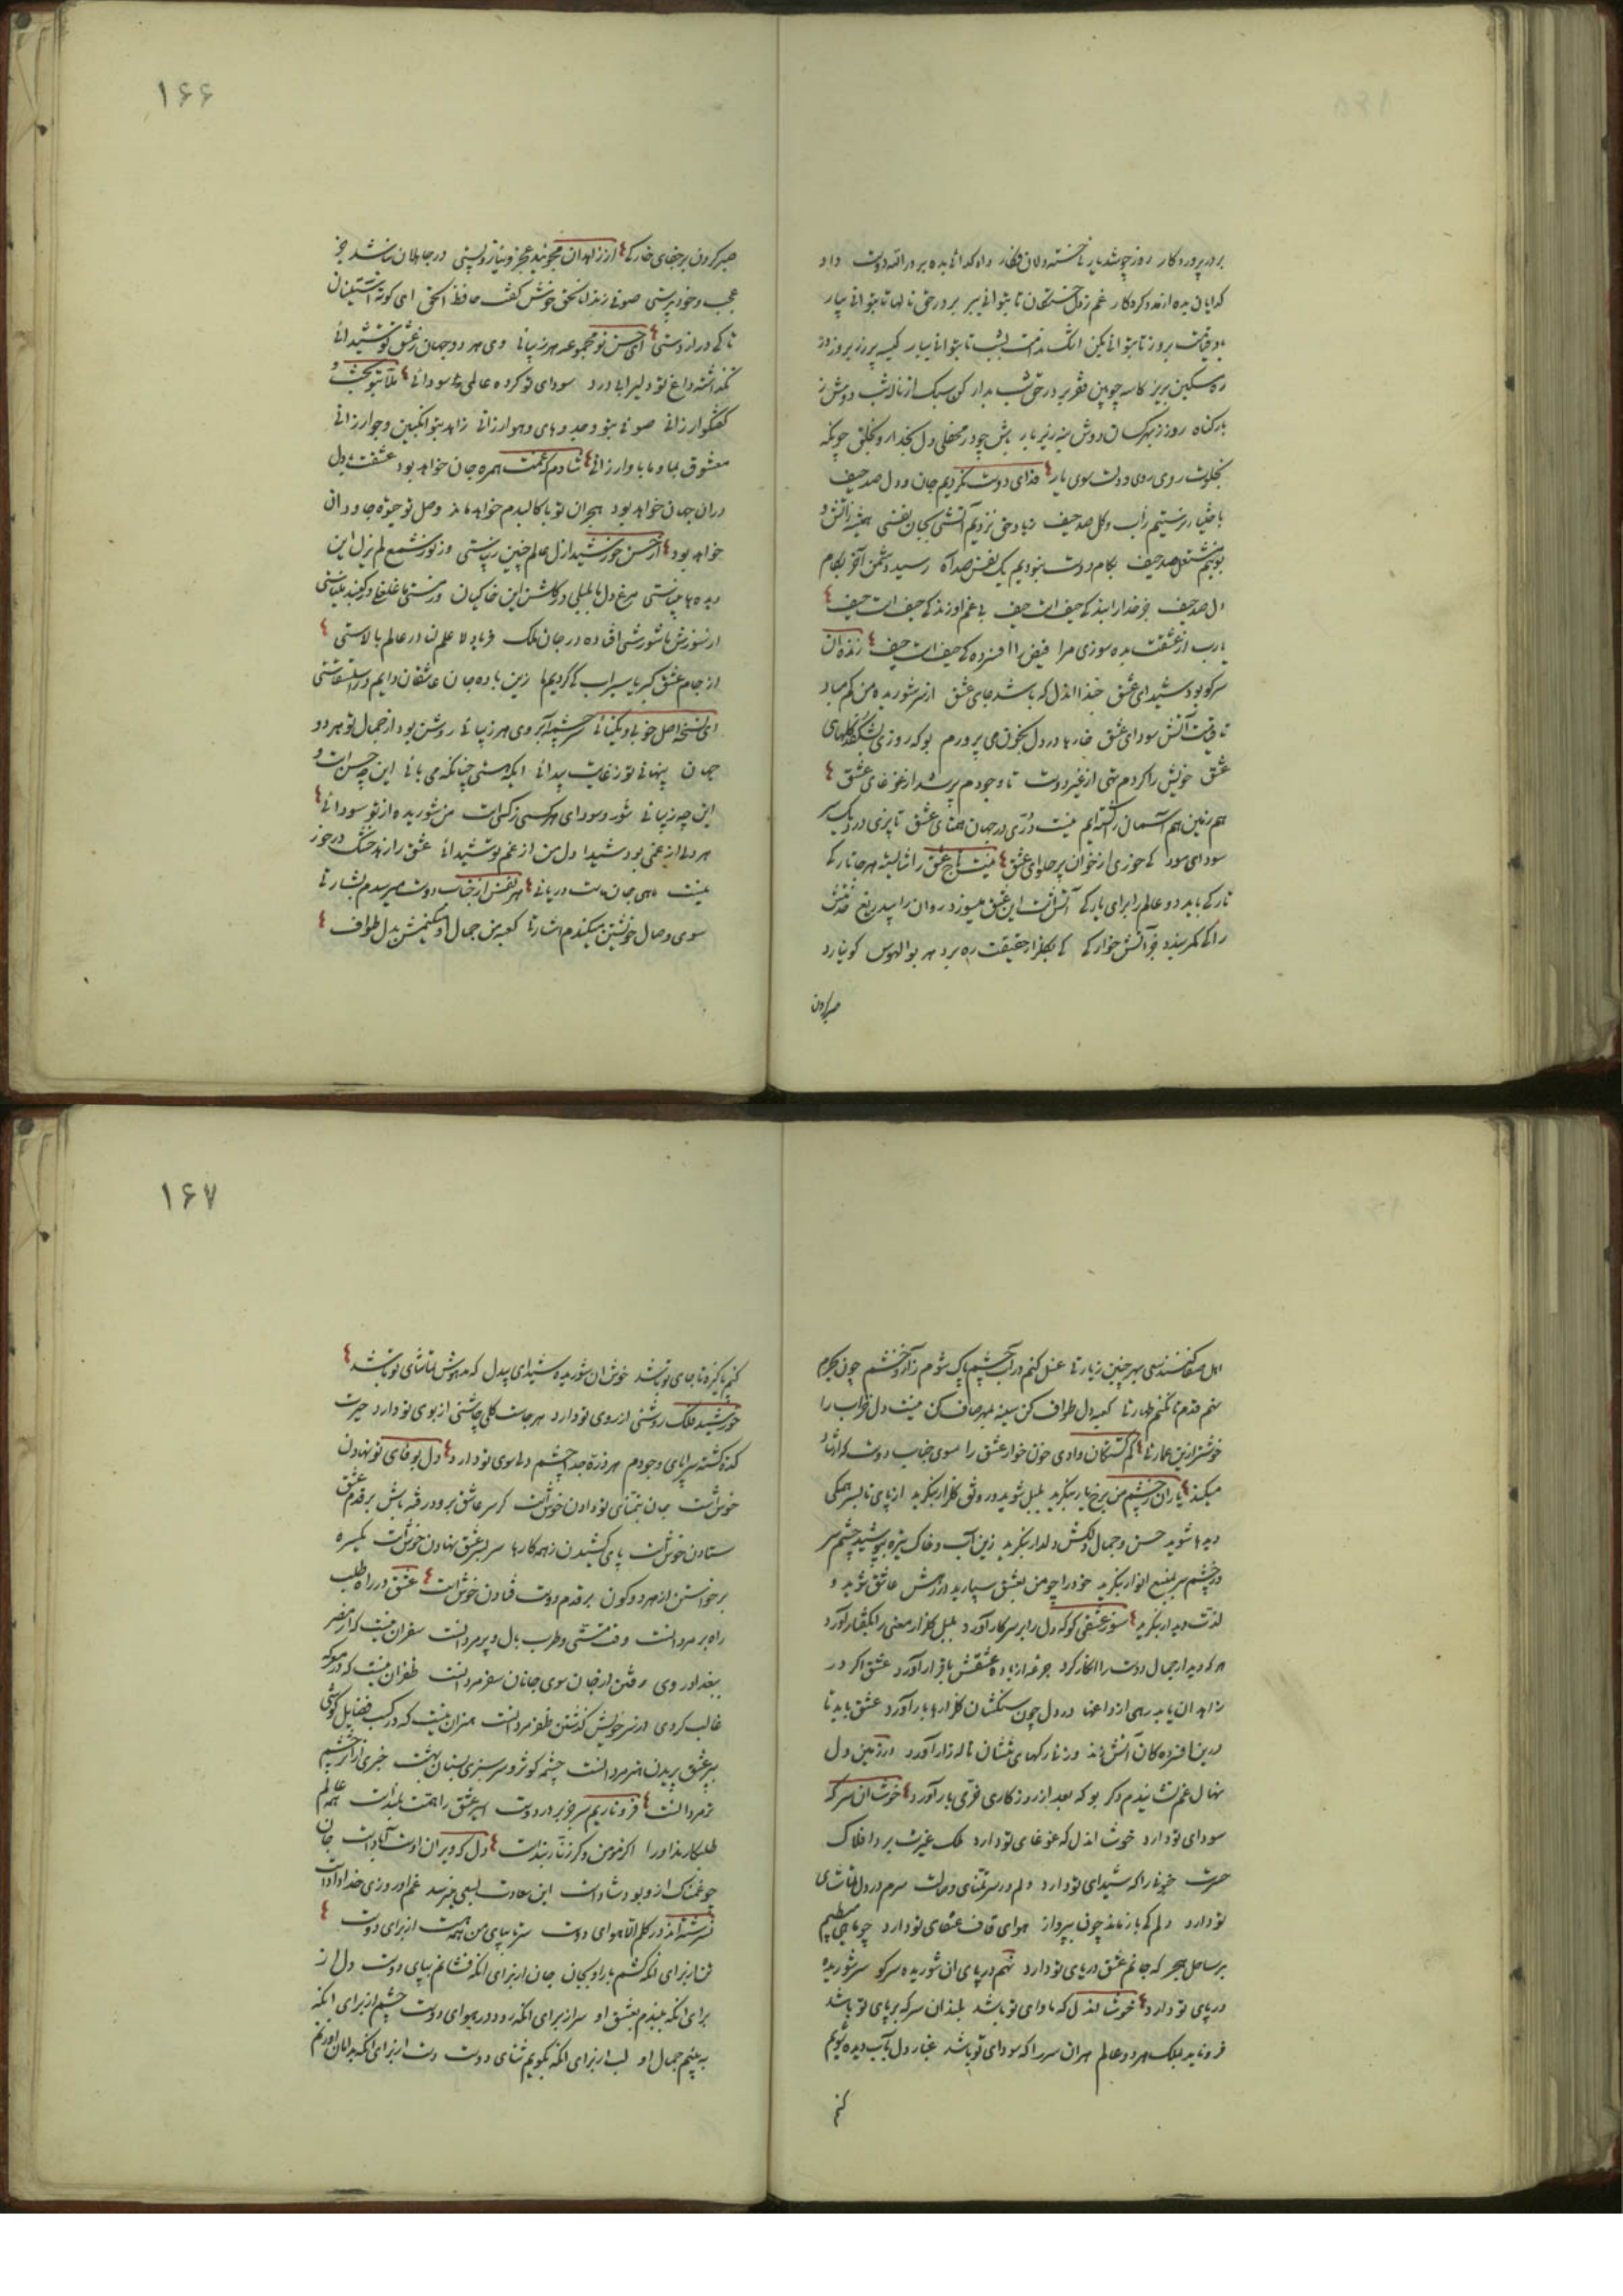 ۱۶۶
بر در پروردگار روز چو شد یار خسته دلان فکار داد گدائی بده بر در الله دوست داد
گدایان بده از مدد کردگار غم ز دل خستگان تا بتوانی ببر بر در حق نالها تا بتوانی بیار
روز تا بتوانی بکن اشک ندامت بشب تا بتوانی ببار کیسه پر زر بروز در
ره مسکین بریز کاسه چوبین فقر بر در حق شب بدار کن سبک از ناله شب دوش ز
بار گناه روز ز بهر کسان دوش بنه زیر بار باش چو در محفلی دل بخدا رو بخلق چونکه
بخلوت روی روی دلت سوی یار فدای دوست نکردیم جان و دل صد حیف
رسید دشمن آخر بکام
دل صد حیف جز خدا را بندگی حیف است حیف بی غم او زندگی حیف است حیف
یارب از عشقت بده سوزی مرا فیض را افسردگی حیف است حیف زنده آن
سر کو بود شیدای عشق حبذا آندل که باشد جای عشق از سر شوریده من کم مباد
تا قیامت آتش سودای عشق خارها در دل بخون می پرورم بو که روزی بشکفد گلهای
عشق خویش را کردم تهی از غیر دوست تا وجودم پر شد از غوغای عشق
هم زمین هم آسمان را گشته ایم نیست دری در جهان همتای عشق تا پزی در دیک سر
سودای سود کی خوری از خوان پر حلوای عشق نیست تاج عشق را شایسته هر جا تارکی
تارکی باید دو عالم را برای یارکی آتش است این عشق میسوزد روان را بیدریغ
را کی کمر بندد جز آتش خوارکی کی بگلزار حقیقت ره برد هر بوالهوس کو نیارد
صبر کردن
صبر کردن بر جفای خارکی از زاهدان مجوئید عجز و نیاز و پستی در جاهلان نباشد جز
عجب و خودپرستی صوفی رندانه الحق خوش گفت حافظ الحق ای کوته آستینان
تا کی درازدستی ای حسن تو مجموعه هر زیبائی وی هر دو جهان ز عشق تو شیدائی
نگذاشته داغ تو دلی را بی درد سودای تو کرده عالمی سودائی ملا بتو بحث و
گفتگو ارزانی صوفی بتو وجد و های و هو ارزانی زاهد بتو انگبین و جو ارزانی
معشوق بما و ما باو ارزانی شادم که غمت همره جان خواهد بود عشقت بدل
در آن جهان خواهد بود هجران تو با کالبدم خواهد ماند وصل تو حیوة جاودان
خواهد بود از حسن خورشید ازل عالم چنین زیباستی وز نور شمع لم یزل این
دیده ها بیناستی مرغ دل ما بلبلی در گلشن این خاکیان
از سوزش ما شورشی افتاده در جان ملک فریاد لا علم لنا در عالم بالاستی
از جام عشق کبریا سیراب کی گردیم ما زین باده جان عاشقان دایم در استسقاستی
ای نسخه اصل خوبی و یکتائی سرچشمه آبروی هر زیبائی روشن بود از جمال تو هر دو
جهان پنهانی تو ز غایت پیدائی اینکه هستی چنانکه می بائی این چه حسنست و
این چه زیبائی شور و سودای هر کسی ز کسی است من شوریده از تو سودائی
هر دلی از غمی بود شیدا دل من از غم تو شیدائی عشق را زهد خشک درخور
نیست ماهی جان ماست دریائی هر نفس از جناب دوست میرسدم بشارتی
سوی وصال خویشتن میکندم اشارتی کعبه من جمال او میکنمش بدل طواف
۱۶۷
اهل صفا کنند سعی بهر چنین زیارتی غسل کنم در آب چشم پاک شوم ز آن خشم چون بحرم
نهم قدم تا نکنم طهارتی کعبه دل طواف کن سینه بمهر صاف کن نیست دل خراب را
خوشتر ازین عمارتی گم گشتگان وادی خون خوار عشق را سوی جناب دوست که ارشاد
میکند یاران ز چشم من برخ یار بنگرید بلبل شوید و رونق گلزار بنگرید از پای تا بسر همگی
دیده شوید حسن و جمال دلکش دلدار بنگرید زین آب و خاک تیره بپوشید چشم سر
در چشم سر بمنبع انوار بنگرید خود را چو من بعشق سپارید در رهش عاشق شوید و
لذت دیدار بنگرید سوز عشقی کو که دل را بر سر کار آورد بلبل گلزار معنی را بگفتار آورد
هر که دیدار جمال دوست را انکار کرد جرعه از باده عشقش باقرار آورد عشق اگر در
زاهدان یابد رهی از داغها در دل چون سنگشان گلزارها بار آورد عشق باید تا
درین افسردگان آتش زند وز تارگهای خشکشان ناله زار آورد در زمین دل
نهال غم نشانیدم دگر بو که بعد از روزگاری خرمی بار آورد خوش آن سر که
سودای تو دارد خوش آندل که غوغای تو دارد ملک غیرت برد افلاک
حسرت جنونی را که شیدای تو دارد دلم در سر تمنای وصالت سرم در دل تماشای
تو دارد دلم کی باز ماند چون بپرواز هوای قاف عنقای تو دارد چو ماهی میطپم
بر ساحل هجر که جانم عشق دریای تو دارد نهم در پای آن شوریده سر کو سر شوریده
در پای تو دارد خوش آندل که ماوای تو باشد بلند آن سر که بر پای تو باشد
فرو ناید بملک هر دو عالم هر آن سر را که سودای تو باشد غبار دل بآب دیده شویم
کنم
کنم پاکیزه تا جای تو باشد خوش آن شوریده شیدای بیدل که مدهوش تماشای تو باشد
خورشید فلک روشنی از روی تو دارد هر جاست گلی چاشنی از بوی تو دارد حیرت
کده گشته سراپای وجودم هر ذره جدا چشم دلم سوی تو دارد دل بوفای تو نهادن
خوش است جان بتمنای تو دادن خوش است گر سر عاشق برود در رهش باش بر قدم عشق
ستادن خوش است پای کشیدن ز همه کارها سر بسر عشق نهادن خوش است یکسره
برخواستن از هر دو کون بر قدم دوست فتادن خوش است عشق در راه طلب
راهبر مردانست وقت مستی و طرب بال و پر مردانست سفر آن نیست که از مصر
ببغداد روی رفتن از جان سوی جانان سفر مردانست ظفر آن نیست که در معرکه
غالب گردی از سر خویش گذشتن ظفر مردانست هنر آن نیست که در کسب فضایل کوشی
بپر عشق پریدن هنر مردانست چشمه کوثر و سرسبزی بستان بهشت خبری از اثر چشم
تر مردانست فرو ناریم سر جز بر در دوست اسیر عشق را همت بلند است همه عالم
طلبکارند او را اگر مؤمن و گر زنار بند است دل که ویران اوست آباد است جان
چو غمناک ازو بود شاد است این سعادت بسعی می نرسد غم او روزی خداداد است
نسرشته اند در گلم الا هوای دوست سر تا بپای من همه هست از برای دوست
تن از برای آنکه کشم بار او بجان جان از برای آنکه فشانم بپای دوست دل از
برای آنکه ببندم بعشق او سر از برای آنکه رود در هوای دوست چشم از برای آنکه
به بینم جمال او لب از برای آنکه بگویم ثنای دوست دست از برای آنکه بدامان او زنم